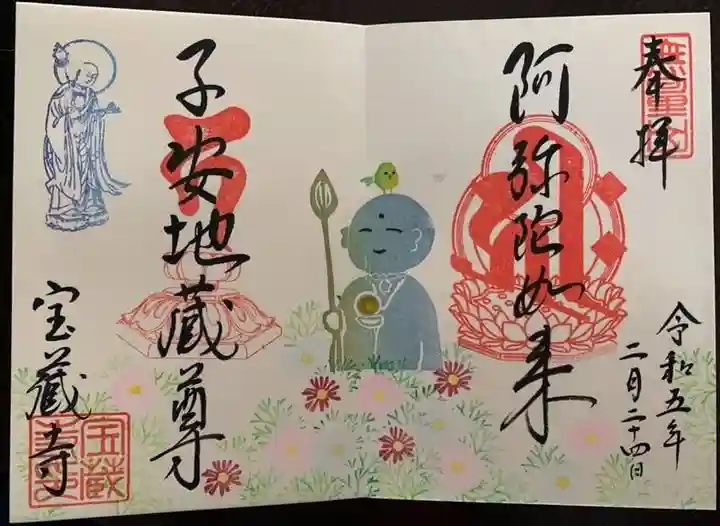 奉拝
阿弥陀如来
令和五年
二月二十四日
子安地蔵尊
宝蔵寺